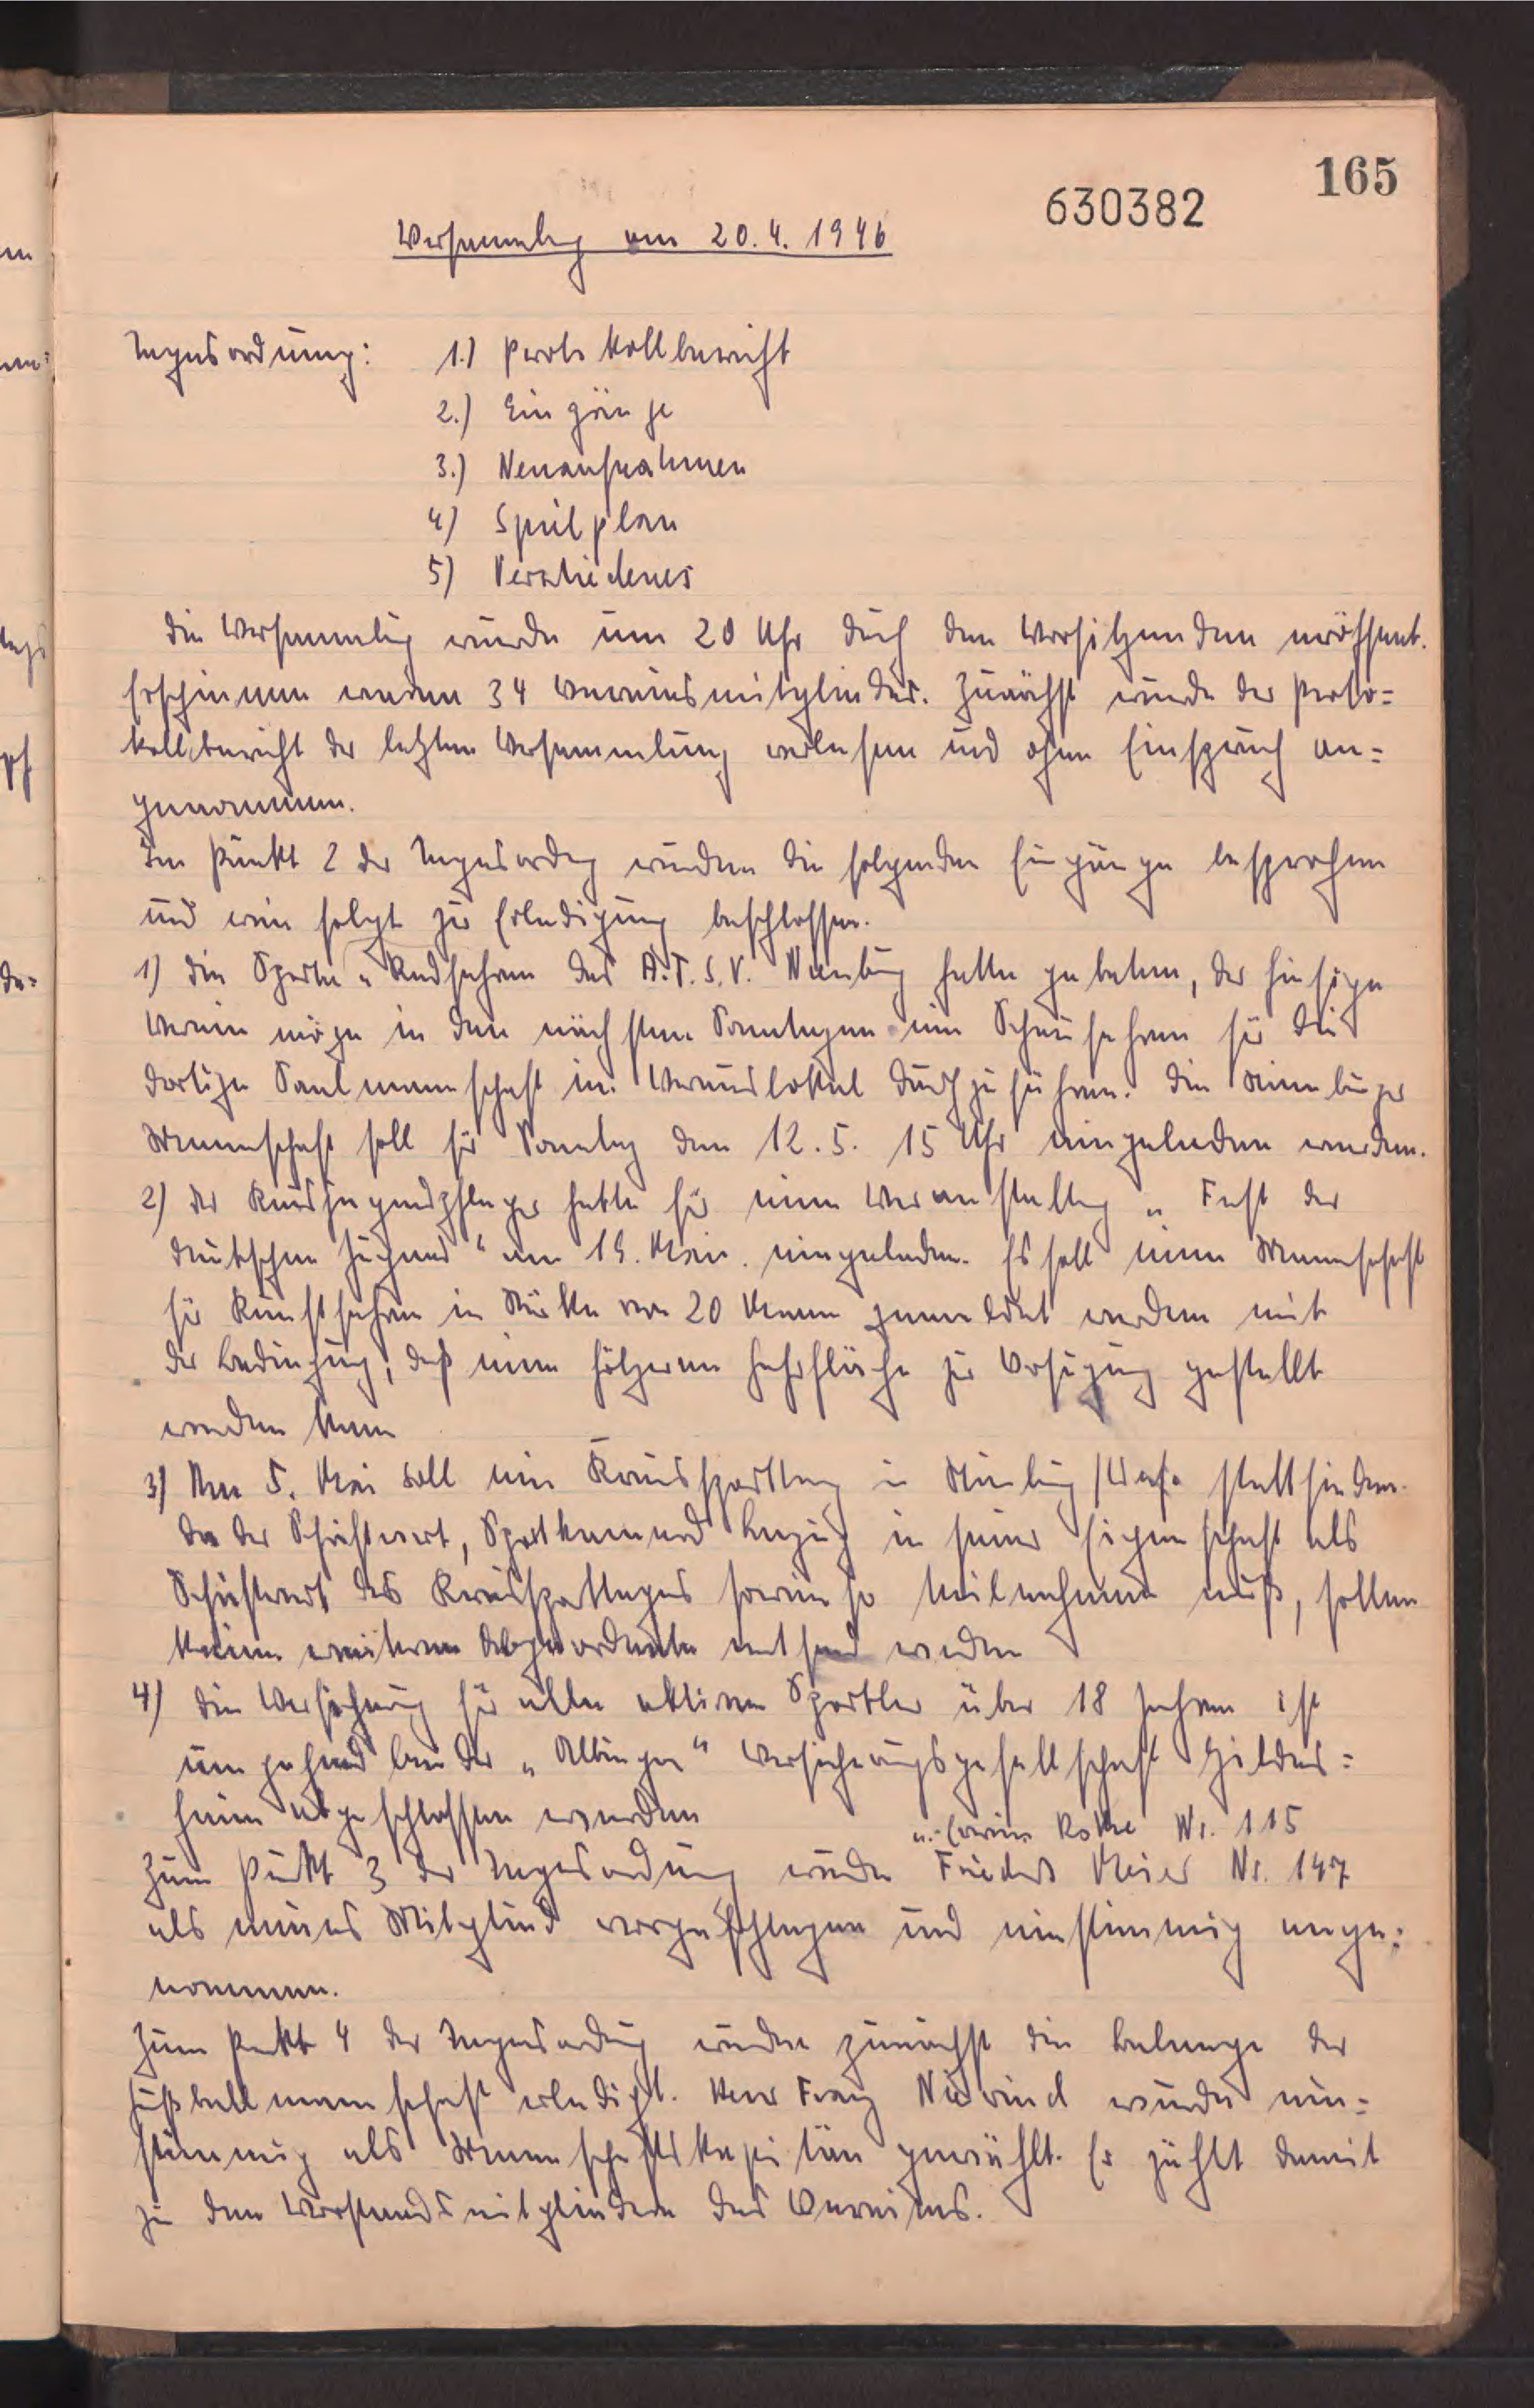 165
630382
Versammlg am 20.4.1946
Tagesordnung: 1.) Protokollbericht
2.) Eingänge
3.) Neuaufnahmen
4) Spielplan
5) Verschiedenes
Die Versammlg wurde um 20 Uhr durch den Vorsitzenden eröffnet.
Erschienen waren 34 Vereinsmitglieder. Zunächst wurde der Proto=
kollbericht der letzten Versammlung verlesen und ohne Einspruch an=
genommen.
Im Punkt 2 der Tagesordng wurden die folgenden Eingänge besprochen
und wie folgt zur Erledigung beschlossen.
1) Die Sparte „Radfahren des A.T.S.V. Nienburg hatte gebeten, der hiesige
Verein möge in den nächsten Sonntagen ein Schaufahren für die
dortige Saalmannschaft im Vereinslokal durchzuführen. Die Nienburger
Mannschaft soll für Sonntag den 12.5. 15 Uhr eingeladen werden.
2) Der Kreisjugendpfleger hatte für eine Veranstaltg „Fest der
deutschen Jugend" am 19. Mai eingeladen. Es soll eine Mannschaft
für Kunstfahren in Stärke von 20 Mann gemeldet werden mit
der Bedingung, daß eine hölzerne Fahrfläche zur Verfügung gestellt
werden kann
3) Am 5. Mai soll ein Kreissporttag in Nienburg/Weser stattfinden.
Da der Schriftwart, Sportkamerad in seiner Eigenschaft als
Schriftwart des Kreissporttages sowieso teilnehmen muß, sollen
keine weiteren Abgeordnete entsand werden
4) Die Versicherung für alle aktiven Sportler über 18 Jahren ist
umgehend bei der „Albingia" Versicherungsgesellschaft Hildes=
heim abgeschlossen werden
u. Erwin Rothe Nr. 115
Zum Punkt 3 der Tagesordnung wurde Friedr. Meier Nr. 147
als neues Mitglied vorgeschlagen und einstimmig ange=
nommen.
Zum Punkt 4 der Tagesordng wurden zunächst die Belange der
Fußballmannschaft erledigt. Herr Franz wurde ein=
stimmig als Mannschaftskapitän gewählt. Er zählt damit
zu den Vorstandsmitgliedern des Vereins.